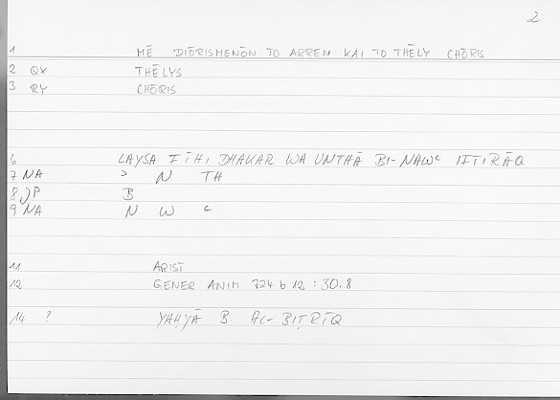 2
1 MĒ DIŌRISMENŌN TO ARREN KAI TO THĒLY CHŌRIS
2 QX THĒLYS
3 RY CHŌRIS
6 LAYSA FĪHI DHAKAR WA UNTHĀ BI-NAWᶜ IFTIRĀQ
7 NA ᵓ N TH
8 JP B
9 NA N W ᶜ
11 ARIST
12 GENER ANIM 724 b 12 : 30.8
14 ? YAḤYĀ B. AL-BIṬRĪQ